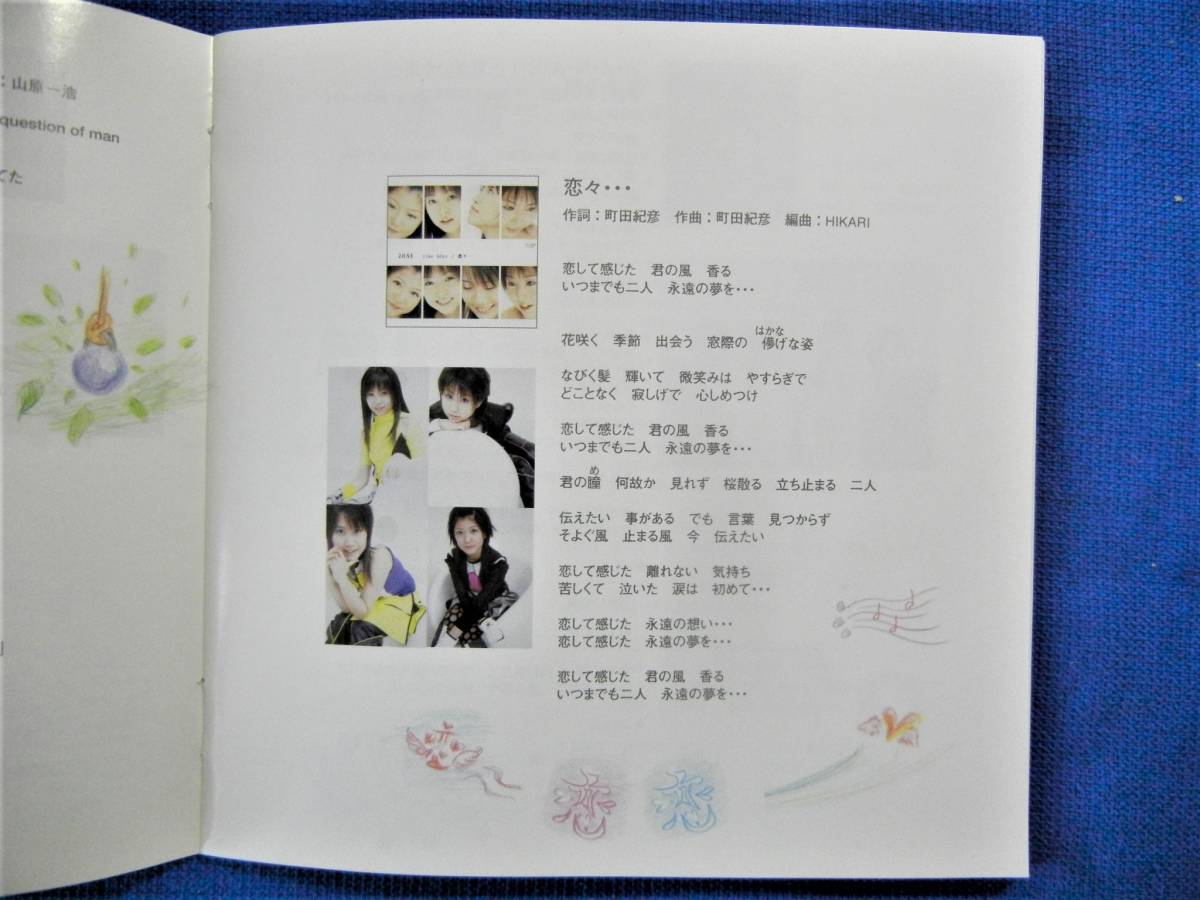 ：山原一浩
question of man
てた
恋々・・・
作詞：町田紀彦　作曲：町田紀彦　編曲：HIKARI
恋して感じた　君の風　香る
いつまでも二人　永遠の夢を・・・
はかな
花咲く　季節　出会う　窓際の　儚げな姿
なびく髪　輝いて　微笑みは　やすらぎで
どことなく　寂しげで　心しめつけ
恋して感じた　君の風　香る
いつまでも二人　永遠の夢を・・・
め
君の瞳　何故か　見れず　桜散る　立ち止まる　二人
伝えたい　事がある　でも　言葉　見つからず
そよぐ風　止まる風　今　伝えたい
恋して感じた　離れない　気持ち
苦しくて　泣いた　涙は　初めて・・・
恋して感じた　永遠の想い・・・
恋して感じた　永遠の夢を・・・
恋して感じた　君の風　香る
いつまでも二人　永遠の夢を・・・
恋
恋
恋